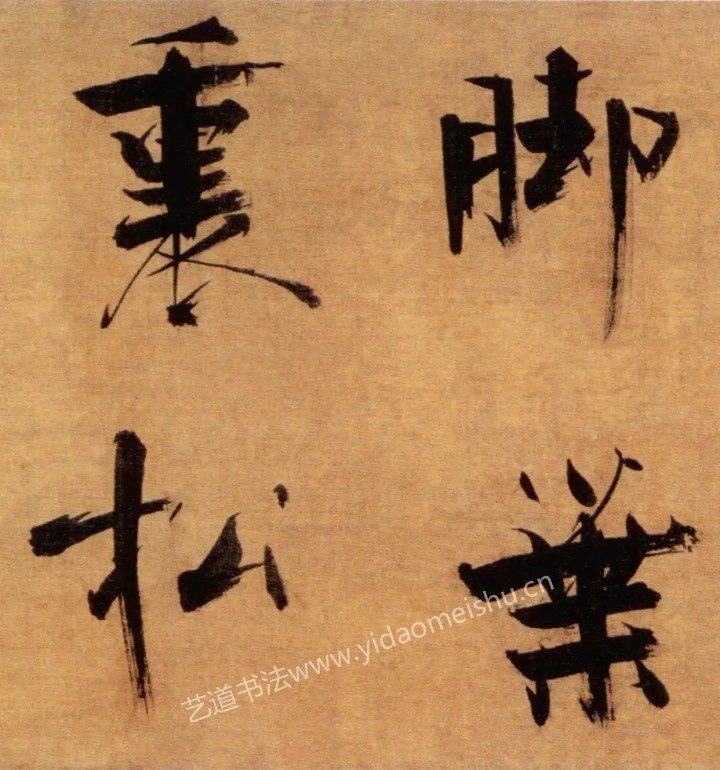 脚葉
裏松
艺道书法www.yidaomeishu.cn